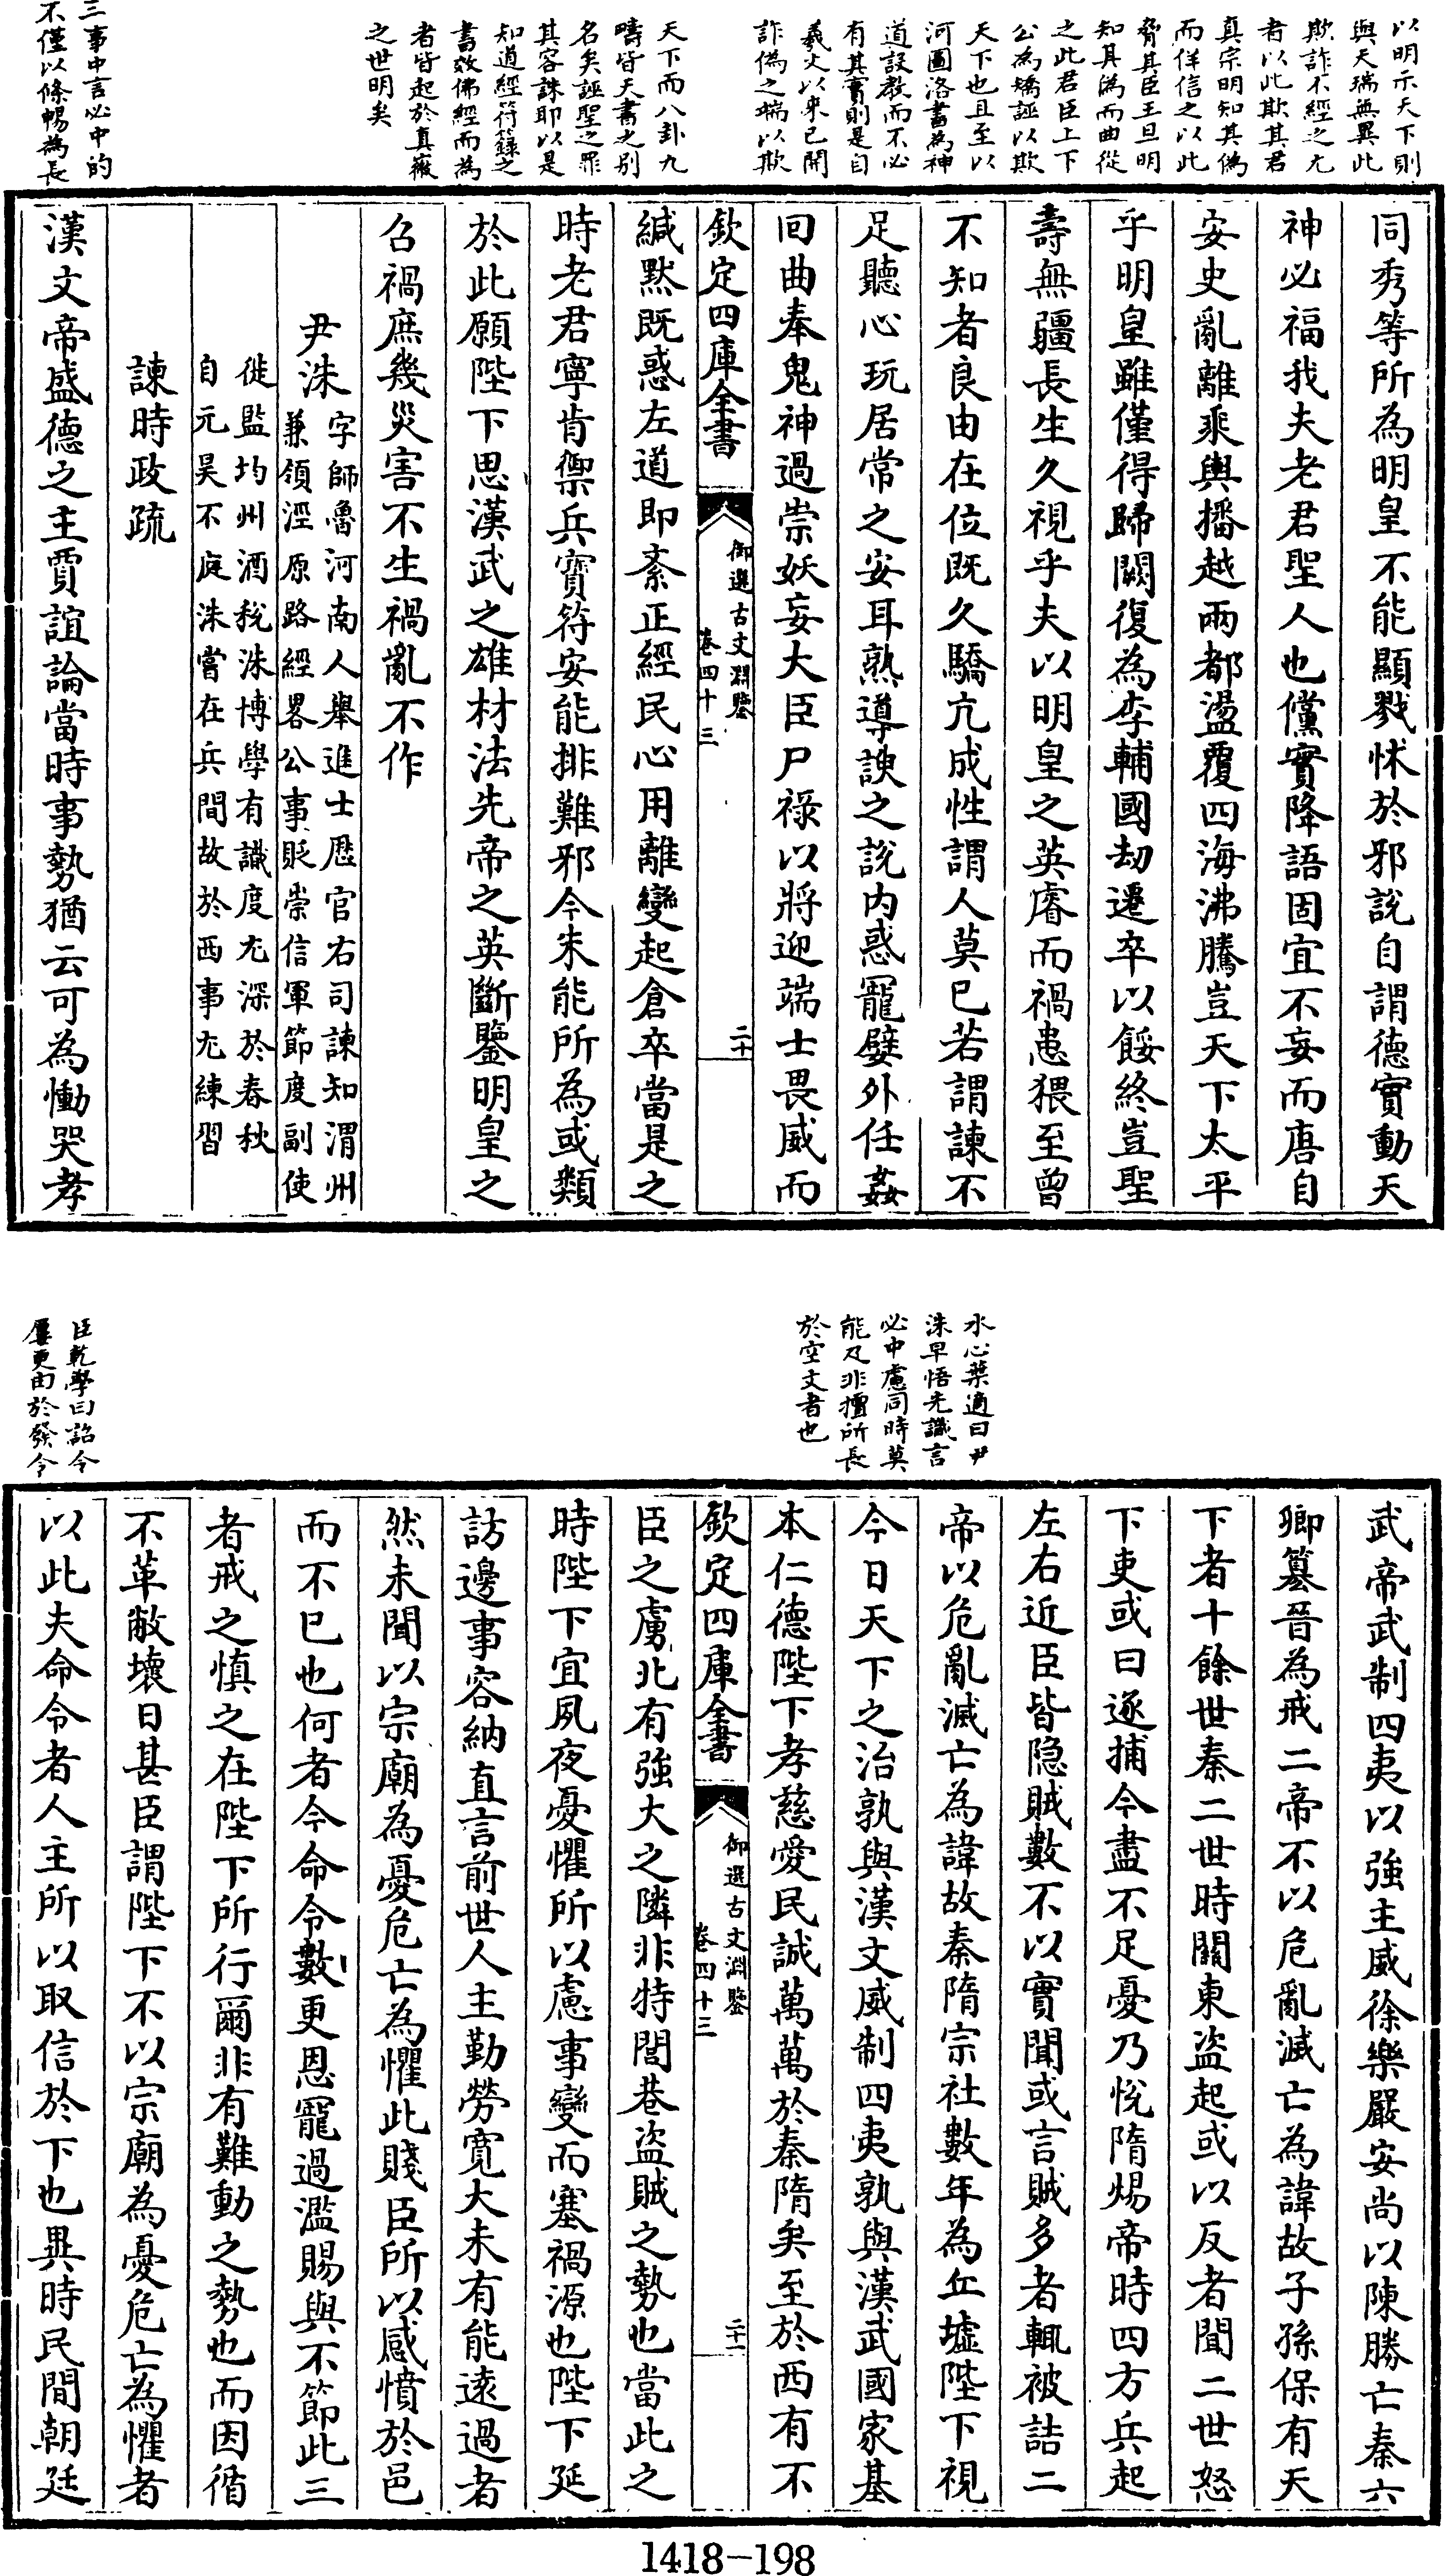 以明示天下則
與天瑞無異此
欺詐不經之尤
者以此欺其君
真宗明知其偽
而佯信之以此
脅其臣王旦明
知其偽而曲從
之此君臣上下
公為矯誣以欺
天下也且至以
河圖洛書為神
道設教而不必
有其實則是自
羲文以來已開
詐偽之端以欺
天下而八卦九
疇皆天書之别
名矣誣聖之罪
其容誅耶以是
知道經符籙之
書效佛經而為
者皆起於真廠
之世明矣
三事中言必中的
不僅以條暢為長
同秀等所為明皇不能顯戮怵於邪說自謂德實動天
神必福我夫老君聖人也儻實降語固宜不妄而唐自
安史亂離乘輿播越兩都盪覆四海沸騰豈天下太平
乎明皇雖僅得歸闕復為李輔國劫遷卒以餒終豈聖
壽無疆長生久視乎夫以明皇之英睿而禍患猥至曾
不知者良由在位既久驕亢成性謂人莫已若謂諫不
足聽心玩居常之安耳熟導諛之說内惑寵嬖外任姦
回曲奉鬼神過崇妖妄大臣尸祿以將迎端士畏威而
欽定四庫全書
御選古文淵鑒
卷四十三
二十
緘默既惑左道即紊正經民心用離變起倉卒當是之
時老君寧肯禦兵寶符安能排難邪今朱能所為或類
於此願陛下思漢武之雄材法先帝之英斷鑒明皇之
召禍庶幾災害不生禍亂不作
尹洙
字師魯河南人舉進士歷官右司諫知渭州
兼領涇原路經畧公事貶崇信軍節度副使
徙監均州酒稅洙博學有識度尤深於春秋
自元昊不庭洙嘗在兵間故於西事尤練習
諫時政疏
漢文帝盛德之主賈誼論當時事勢猶云可為慟哭孝
水心葉適曰尹
洙早悟先識言
必中慮同時莫
能及非擅所長
於空文者也
臣乾學曰詔令
屢更由於發令
武帝武制四夷以強主威徐樂嚴安尚以陳勝亡秦六
卿簒晉為戒二帝不以危亂滅亡為諱故子孫保有天
下者十餘世秦二世時關東盜起或以反者聞二世怒
下吏或曰逐捕今盡不足憂乃悅隋煬帝時四方兵起
左右近臣皆隐賊數不以實聞或言賊多者輒被詰二
帝以危亂滅亡為諱故秦隋宗社數年為丘墟陛下視
今日天下之治孰與漢文威制四夷孰與漢武國家基
本仁德陛下孝慈愛民誠萬萬於秦隋矣至於西有不
欽定四庫全書
御選古文淵鑒
卷四十三
二十一
臣之虜北有強大之隣非特閭巷盜賊之勢也當此之
時陛下宜夙夜憂懼所以慮事變而塞禍源也陛下延
訪邊事容納直言前世人主勤勞寬大未有能遠過者
然未聞以宗廟為憂危亡為懼此賤臣所以感憤於邑
而不已也何者今命令數更恩寵過濫賜與不節此三
者戒之慎之在陛下所行爾非有難動之勢也而因循
不革敝壞日甚臣謂陛下不以宗廟為憂危亡為懼者
以此夫命令者人主所以取信於下也異時民間朝廷
1418-198